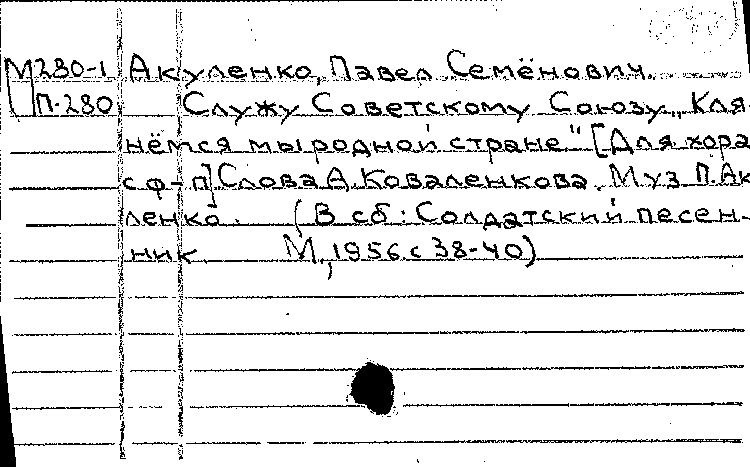 М280-1 Акуленко, Павел Семёнович.
П-280 Служу Советскому Союзу. „Кля-
нёмся мы родной стране." [Для хора
с ф-п] Слова А. Коваленкова. Муз. П. Ак
ленко. (В сб: Солдатский песен-
ник М., 1956. с 38-40)